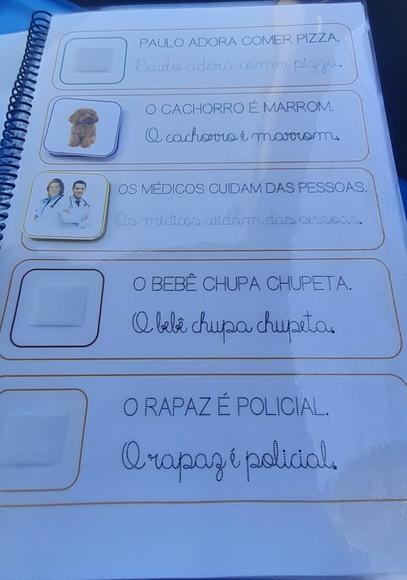 PAULO ADORA COMER PIZZA.
Paulo adora comer pizza.
O CACHORRO É MARROM.
O cachorro é marrom.
OS MÉDICOS CUIDAM DAS PESSOAS.
Os médicos cuidam das pessoas.
O BEBÊ CHUPA CHUPETA.
O bebê chupa chupeta.
O RAPAZ É POLICIAL.
O rapaz é policial.